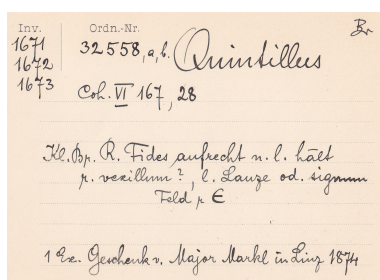 Inv. Ordn.-Nr. Br
1671 32558, a, b. Quintillus
1672
1673 Coh. VI 167, 28
Kl. Br. R. Fides aufrecht n. l. hält
r. vexillum?, l. Lanze od. signum
Feld r €
1 Ex. Geschenk v. Major Markl in Linz 1874